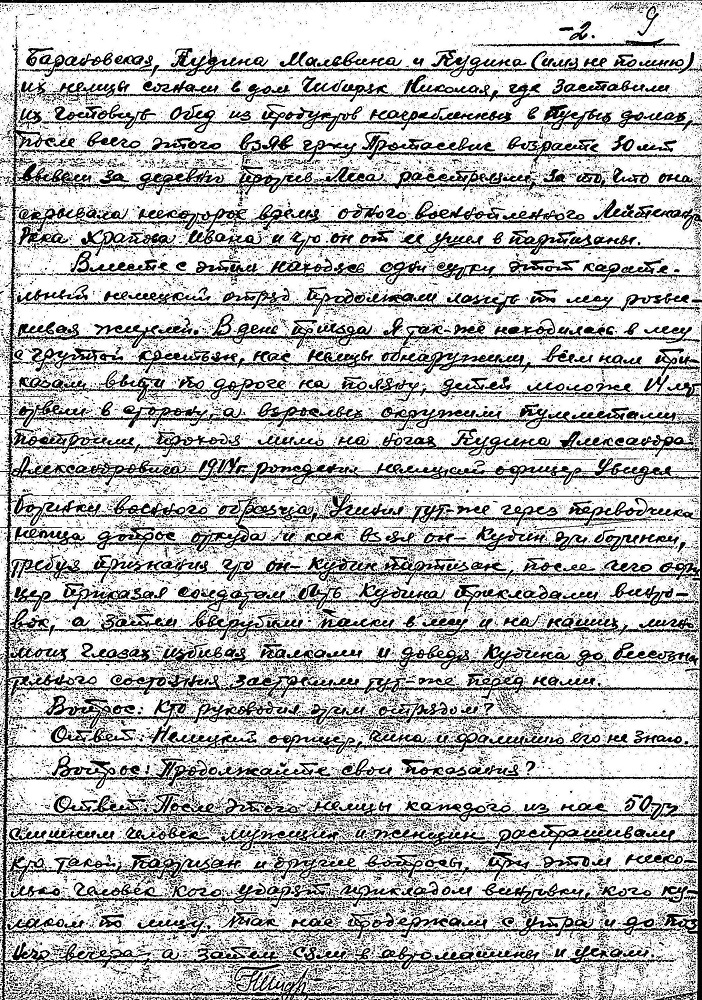 -2. 9
Барановская, Кудина Мальвина и Кудина (имя не помню)
их немцы согнали в дом Чибирек Николая, где заставили
их готовить обед из продуктов награбленных в пустых домах,
после всего этого взяв гр-ку Протасевич возраста 30 лет
вывели за деревню против леса расстреляли, за то, что она
скрывала некоторое время одного военнопленного Лейтенанта
Ркка Храпова Ивана и что он от ее ушел в партизаны.
Вместе с этим находясь одни сутки этот карате-
льный немецкий отряд продолжали лазить по лесу розыс-
кивая жителей. В день приезда я так-же находилась в лесу
с группой крестьян, нас немцы обнаружили, всем нам при-
казали выйти по дороге на поляну, детей моложе 14 лет
отвели в сторону, а взрослых окружили пулеметами
построили, проходя мимо на ногах Кудина Александра
Александровича 1914 г. рождения немецкий офицер увидел
ботинки военного образца, учинил тут-же через переводчика
немца допрос откуда и как взял он - Кудин эти ботинки,
требуя признания что он - Кудин партизан, после чего офи-
цер приказал солдатам бить Кудина прикладами винто-
вок, а затем вверубили палки в лесу и на наших, лично
моих глазах избивая палками и доведя Кудина до бессозна-
тельного состояния застрелили тут-же перед нами.
Вопрос: Кто руководил этим отрядом?
Ответ: Немецкий офицер, чина и фамилию его не знаю.
Вопрос: Продолжайте свои показания?
Ответ: После этого немцы каждого из нас 50ти
слишним человек мужчин и женщин расспрашивали
кто такой, партизан и другие вопросы, при этом неско-
лько человек кого ударят прикладом винтовки, кого ку-
лаком по лицу. Так нас продержали с утра и до поз
него вечера, а затем сели в автомашины и уехали.